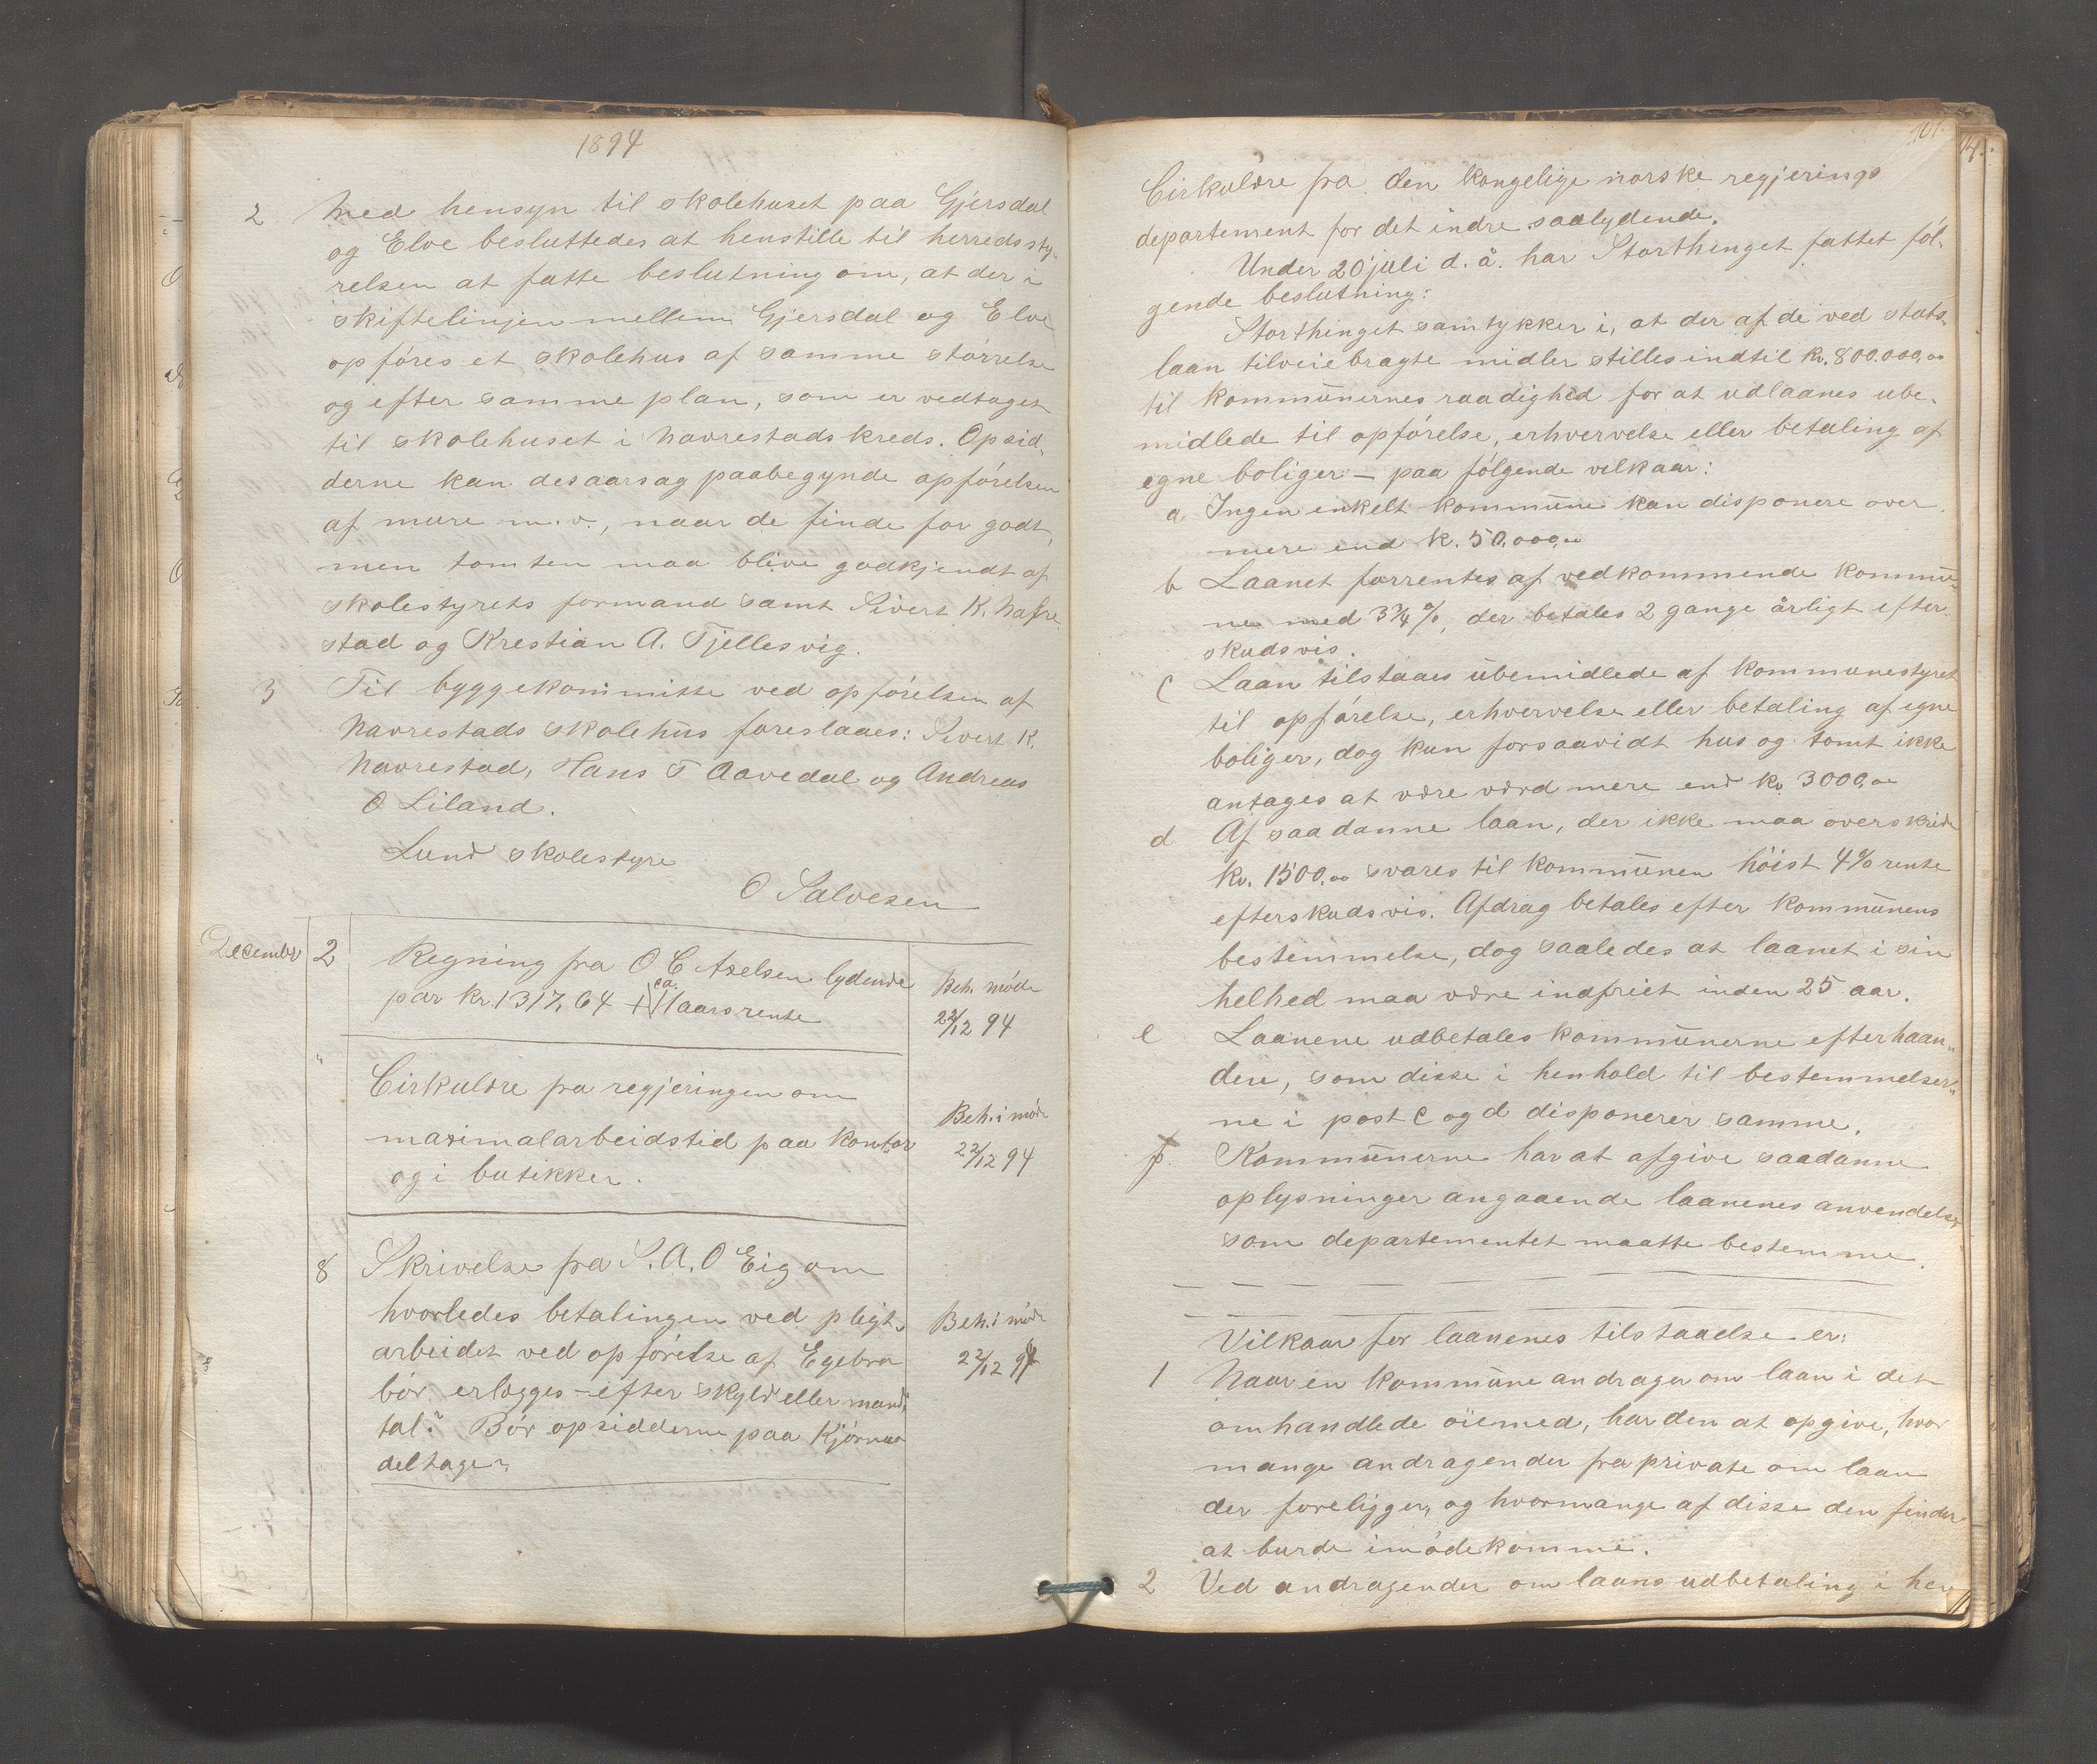 1894
2 Med hensyn til skolehuset paa Gjersdal
og Elve besluttedes at henstille til herredssty-
relsen at fatte beslutning om, at der i
skiftelinjen mellem Gjersdal og Elve
opföres et skolehus af samme störrelse
og efter samme plan, som er vedtaget
til skolehuset i Navrestads kreds. Opsid-
derne kan desaarsag paabegynde opförelsen
af mure m.v., naar de finde for godt,
men tomten maa blive godkjendt af
skolestyrets formand samt Sivert K. Nafre
stad og Krestian A. Tjellesvig.
3 Til byggekommitte ved opförelsen af
Navrestads skolehus foreslaaes: Sivert K.
Navrestad, Hans T Aavedal og Andreas
O Liland.
Lund skolestyre
O Salvesen
December 2 Regning fra O C Axelsen lydende
par kr. 1317,64 + ca. 1 aars rente
Beh. möde
22/12 94
" Cirkulære fra regjeringen om
maximalarbeidstid paa kontor
og i butikker.
Beh. i möde
22/12 94
8 Skrivelse fra S. A. O Eig om
hvorledes betalingen ved pligt-
arbeidet ved opförelse af Egebro
bör erlægges - efter skyld eller mand"
tal? Bör opsidderne paa Kjörnes
deltage?
Beh. i möde
22/12 94
101.
Cirkulære fra den kongelige norske regjerings
departement for det indre saalydende.
Under 20 juli d. å. har Storthinget fattet föl-
gende beslutning:
Storthinget samtykker i, at der af de ved stats-
laan tilveiebragte midler stilles indtil kr. 800.000,00
til kommunernes raadighed for at udlaanes ube-
midlede til opförelse, erhvervelse eller betaling af
egne boliger – paa fölgende vilkaar:
a Ingen enkelt kommune kan disponere over
mere end k. 50.000,00
b Laanet forrentes af vedkommende kommu-
ne med 3¾ %, der betales 2 gange årligt efter
skudsvis.
c Laan tilstaaes übemidlede af kommunestyret
til opförelse, erhvervelse eller betaling af egne
boliger, dog kun forsaavidt hus og tomt ikke
antages at være værd mere end kr 3000,00
d Af saadanne laan, der ikke maa overskride
kr. 1500,00 svares til kommunen höist 4% rente
efterskudsvis. Afdrag betales efter kommunens
bestemmelse, dog saaledes at laanet i sin
helhed maa være indfriet inden 25 aar.
e Laanene udbetales kommunerne efterhaan"
den, som disse i henhold til bestemmelser"
ne i post c og d disponerer samme.
f. Kommunerne har at afgive saadanne
oplysninger angaaende laanenes anvendelse,
som departementet maatte bestemme.
Vilkaar for laanenes tilstaaelse er:
1 Naar en kommune andrager om laan i det
omhandlede öiemed, har den at opgive, hvor
mange andragender fra private om laan
der foreligger, og hvormange af disse den finder
at burde imödekomme.
2 Ved andragender om laans udbetaling i hen